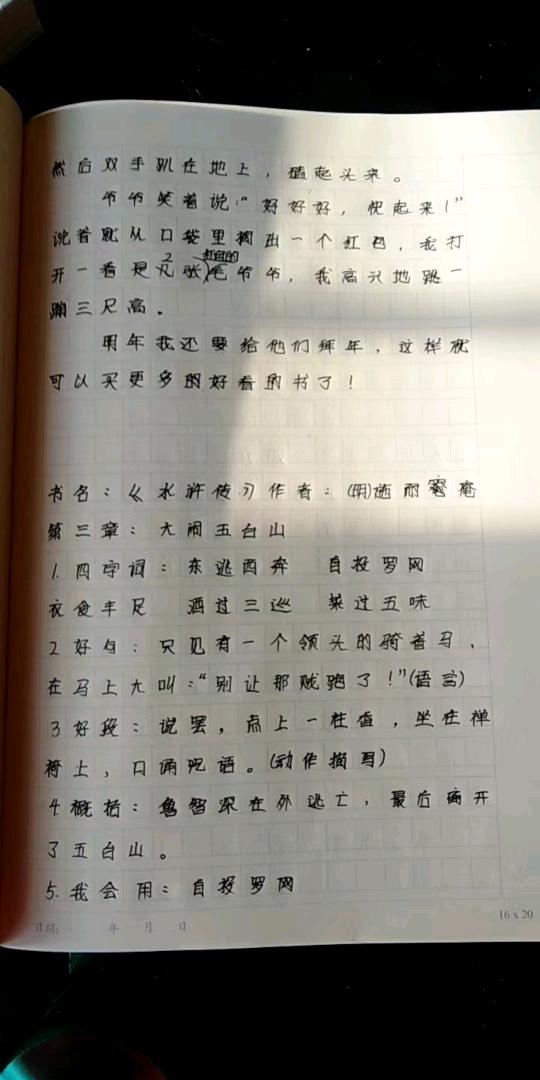 然后双手趴在地上，磕起头来。
爷爷笑着说：“好好好，快起来！”
说着就从口袋里掏出一个红包，我打
开一看是2凡张红包的毛爷爷，我高兴地跳一
蹦三尺高。
明年我还要给他们拜年，这样就
可以买更多的好看的书了！
书名：《水浒传》作者：(明)施耐庵
第三章：大闹五台山
1.四字词：东逃西奔 自投罗网
衣食丰足 酒过三巡 菜过五味
2好句：只见有一个领头的骑着马，
在马上大叫：“别让那贼跑了！”(语言)
3好段：说罢，点上一柱香，坐在禅
椅上，口诵咒语。(动作描写)
4.概括：鲁智深在外逃亡，最后离开
了五台山。
5.我会用：自投罗网
日期： 年 月 日
16x20